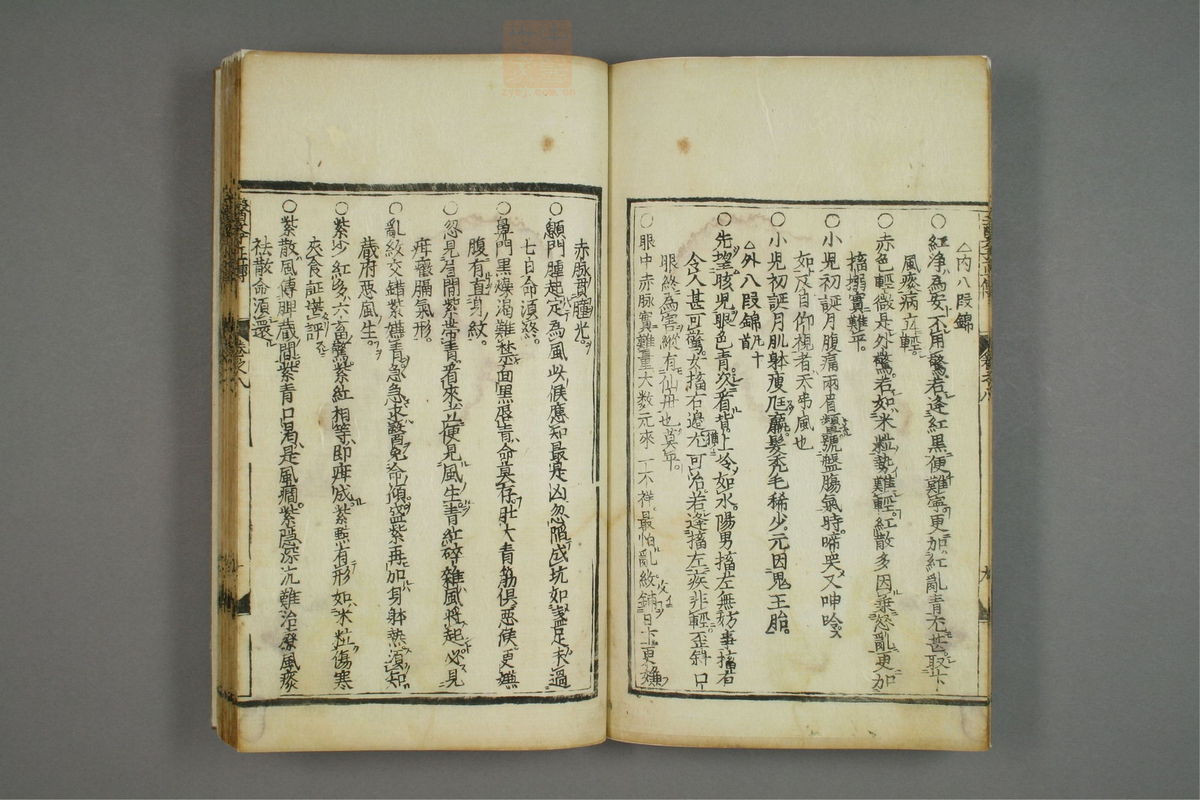 △内八段錦
○紅净為安不用驚若逢紅黒便難寧更加紅亂青尤甚取下
風痰病立輕
○赤色輕微是外驚若如米粒勢難輕紅散多因乗怒亂更加
搐搦實難平
○小児初誕月腹痛兩眉顰號盤腸氣時啼哭又呻吟
如反自仰視者天弔風也
○小児初誕月肌躰痩尫羸髪禿毛稀少元因鬼王胎
△外八段錦首九十
○先望孩児眼色青次看背上冷如水陽男搐左無妨事搐右
令人甚可驚女搐右邊尤可治若逢搐左疾非輕歪斜口
眼終為害縱有仙丹也莫平
○眼中赤脉實難量大数元來一不祥最怕亂紋鋪日上更嫌
赤脉貫瞳光
○顖門腫起定為風此候應知最是凶忽陥成坑如盞足未過
七日命須終
○鼻門黒燥渇難禁面黒唇青命莫存肚大青筋俱惡候更嫌
腹有直身紋
○忽見眉間紫帯青看來立便見風生青紅碎雜風將起必見
疳癥膈氣形
○亂紋交錯紫嫌青急急求醫免命傾盗紫再加身躰熱須知
蔵府惡風生
○紫少紅多六畜驚紫紅相等即疳成紫點有形如米粒傷寒
夾食証堪評
○紫散風傳脾蔵間紫青口渇是風癇紫隠深沉難治療風痰
祛散命須還